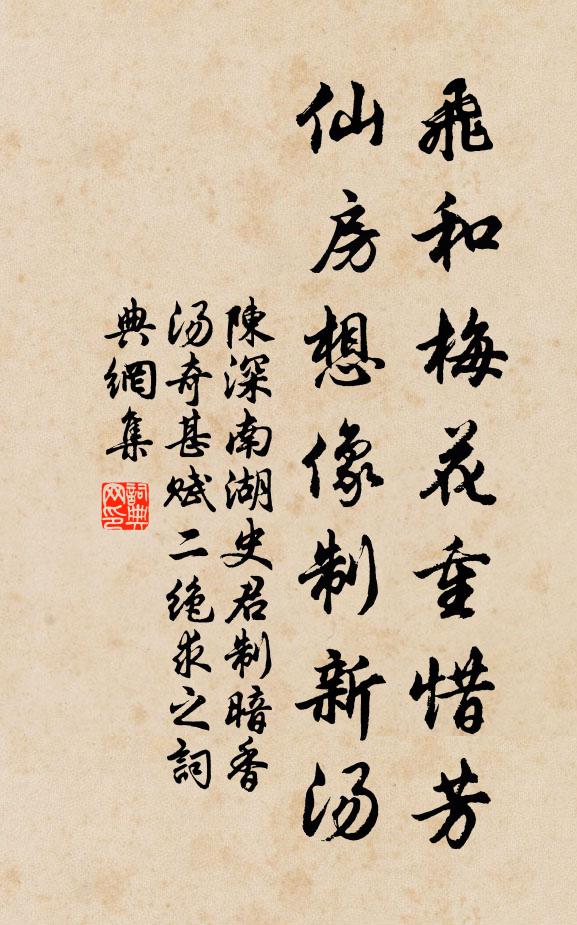 飛和梅花重惜芳
仙房想像制新汤
陳深南湖史君制暗香
汤奇甚赋二绝求之詞
典網集
詞典网印